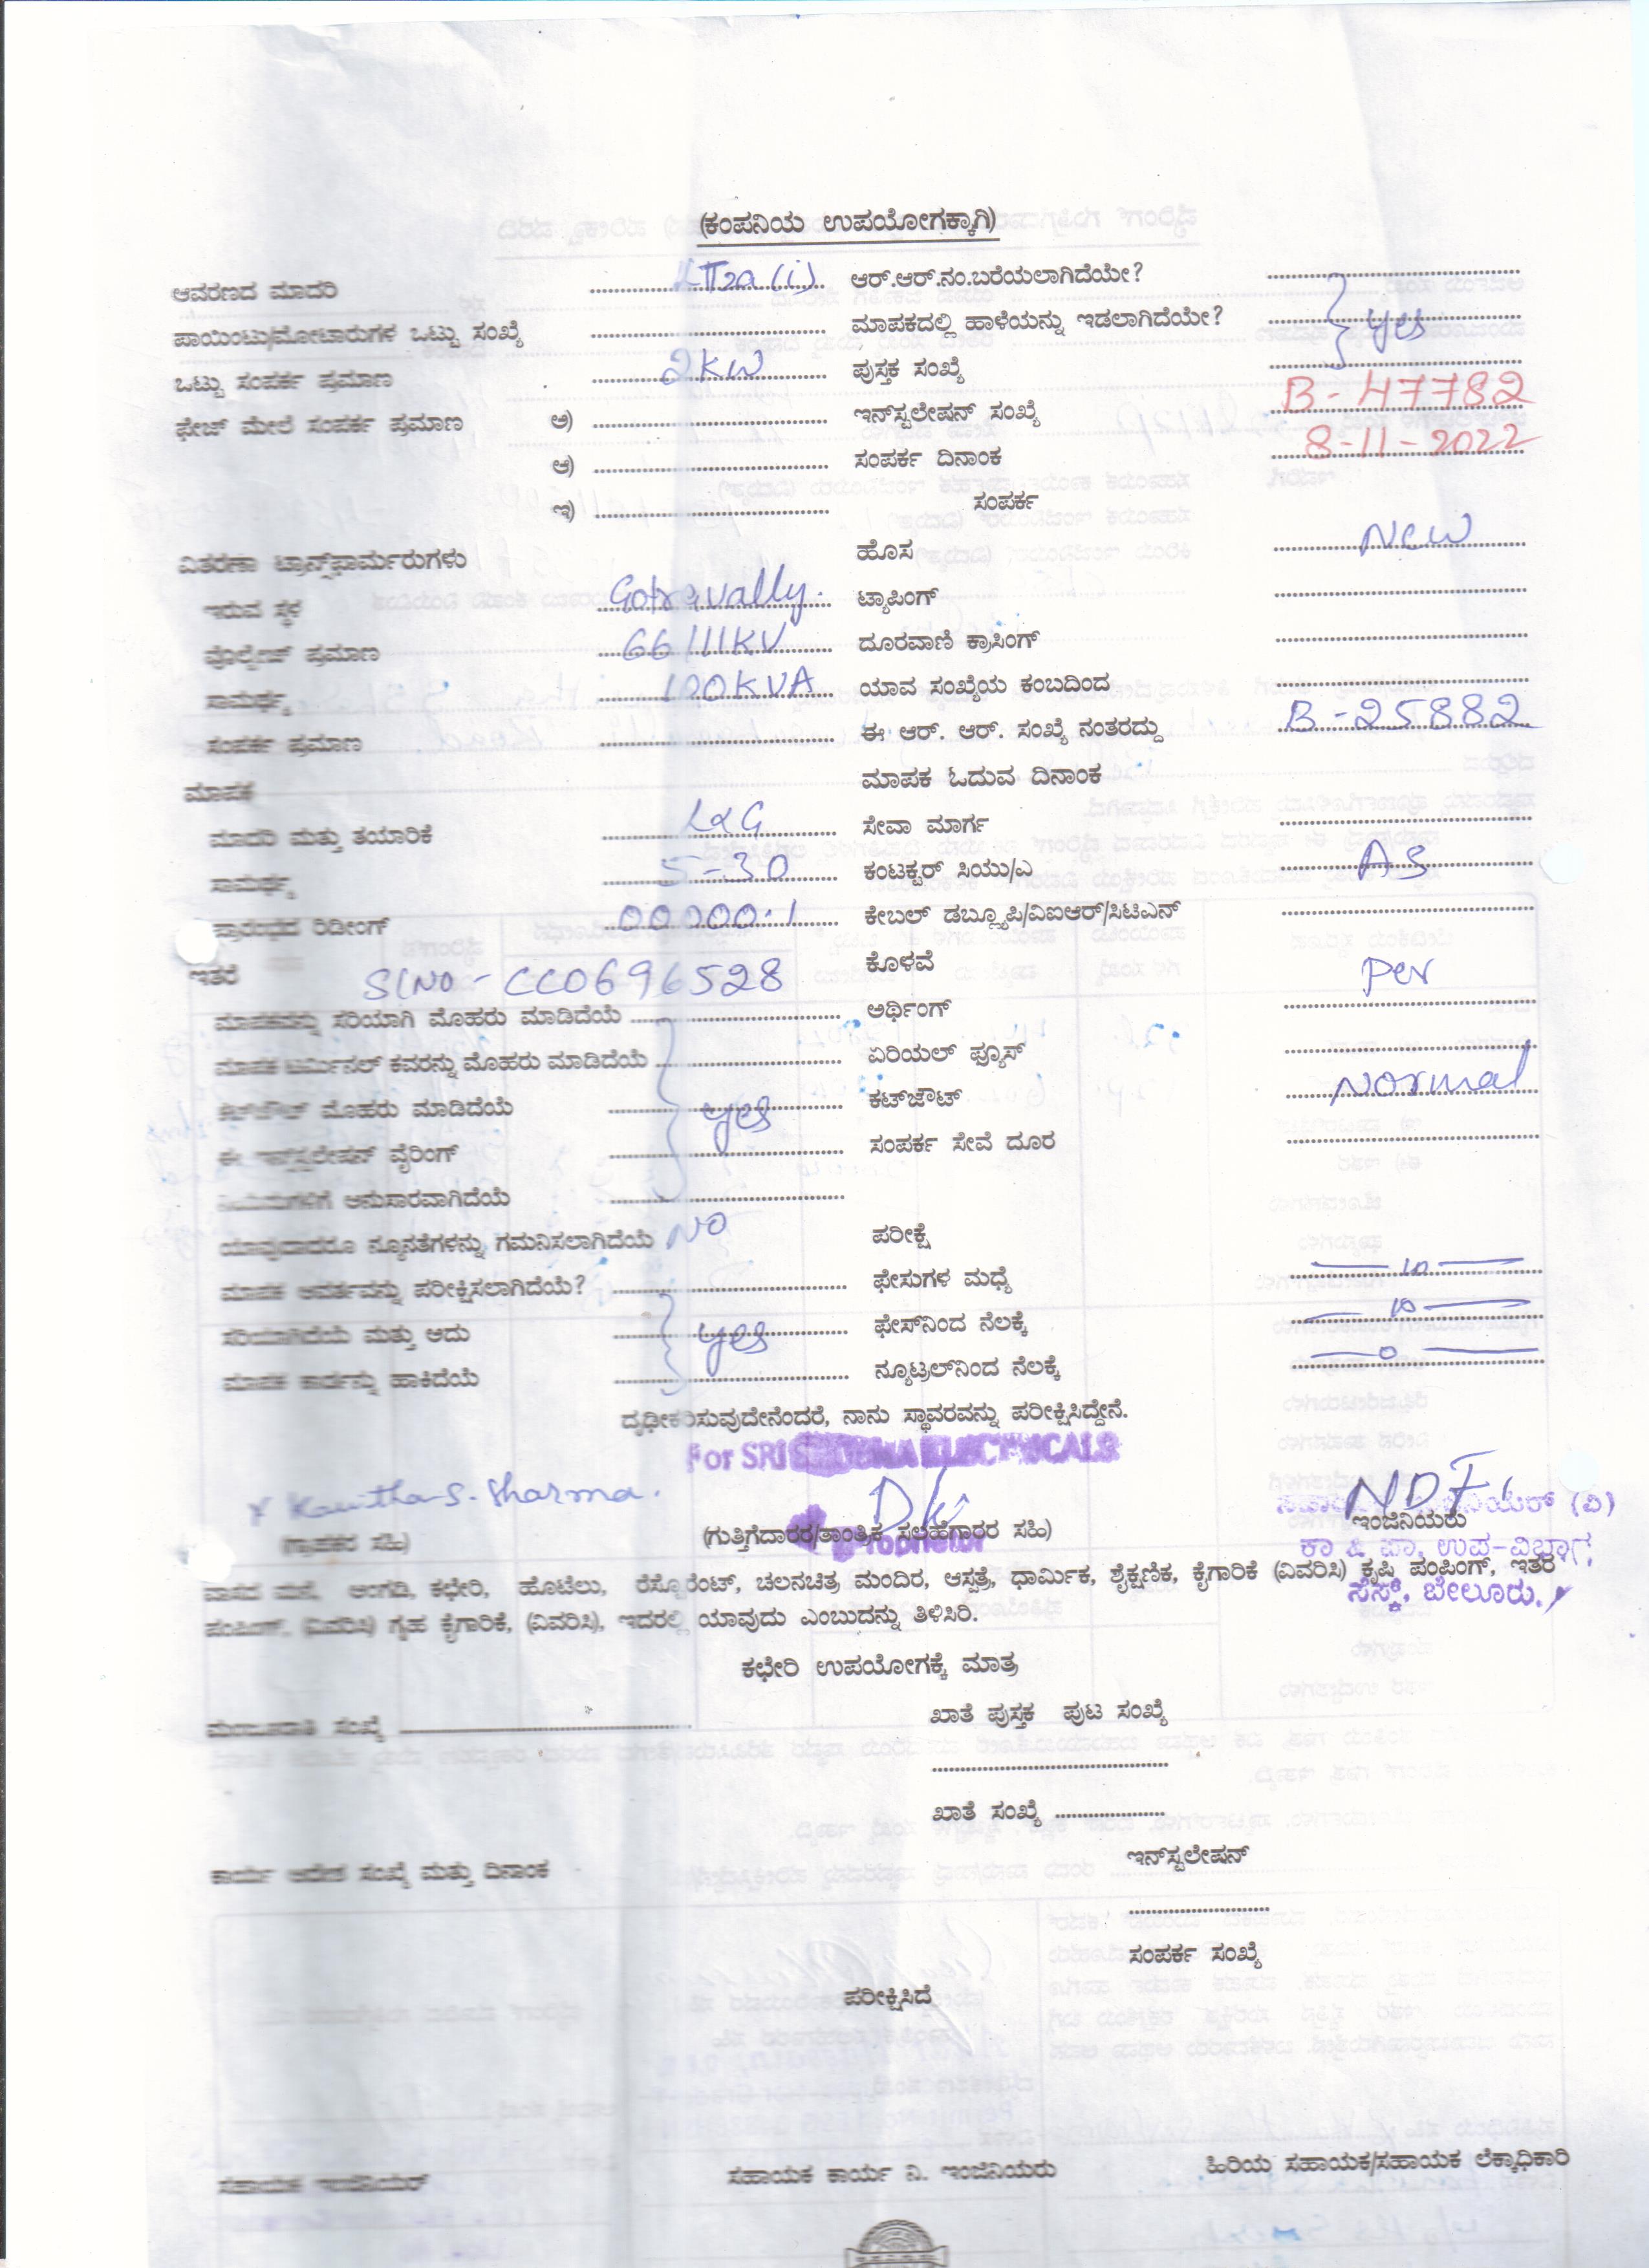 (ಕಂಪನಿಯ ಉಪಯೋಗಕ್ಕಾಗಿ)
ಆವರಣದ ಮಾದರಿ LT2a (i) ಆರ್.ಆರ್.ನಂ.ಬರೆಯಲಾಗಿದೆಯೇ?
ಪಾಯಿಂಟು/ಮೋಟಾರುಗಳ ಒಟ್ಟು ಸಂಖ್ಯೆ ಮಾಪಕದಲ್ಲಿ ಹಾಳೆಯನ್ನು ಇಡಲಾಗಿದೆಯೇ? yes
ಒಟ್ಟು ಸಂಪರ್ಕ ಪ್ರಮಾಣ 2KW ಪುಸ್ತಕ ಸಂಖ್ಯೆ
ಫೇಜ್ ಮೇಲೆ ಸಂಪರ್ಕ ಪ್ರಮಾಣ ಅ) ಇನ್‌ಸ್ಟಲೇಷನ್ ಸಂಖ್ಯೆ B-47782
ಆ) ಸಂಪರ್ಕ ದಿನಾಂಕ 8-11-2022
ಇ) ಸಂಪರ್ಕ
ವಿತರಣಾ ಟ್ರಾನ್ಸ್‌ಫಾರ್ಮರುಗಳು ಹೊಸ New
ಇರುವ ಸ್ಥಳ Gotravally. ಟ್ಯಾಪಿಂಗ್
ವೊಲ್ಟೇಜ್ ಪ್ರಮಾಣ 66/11KV ದೂರವಾಣಿ ಕ್ರಾಸಿಂಗ್
ಸಾಮರ್ಥ್ಯ 100KVA ಯಾವ ಸಂಖ್ಯೆಯ ಕಂಬದಿಂದ
ಸಂಪರ್ಕ ಪ್ರಮಾಣ ಈ ಆರ್. ಆರ್. ಸಂಖ್ಯೆ ನಂತರದ್ದು B-25882
ಮಾಪಕ ಮಾಪಕ ಓದುವ ದಿನಾಂಕ
ಮಾದರಿ ಮತ್ತು ತಯಾರಿಕೆ L&G ಸೇವಾ ಮಾರ್ಗ
ಸಾಮರ್ಥ್ಯ 5-30 ಕಂಟಕ್ಟರ್ ಸಿಯು/ಎ As
ಪ್ರಾರಂಭದ ರಿಡೀಂಗ್ 00000.1 ಕೇಬಲ್ ಡಬ್ಲ್ಯೂಪಿ/ವಿಐಆರ್/ಸಿಟಿಎನ್
ಇತರೆ Sl No - CC0696528 ಕೊಳವೆ per
ಮಾಪಕವನ್ನು ಸರಿಯಾಗಿ ಮೊಹರು ಮಾಡಿದೆಯೆ ಅರ್ಥಿಂಗ್
ಮಾಪಕ ಟರ್ಮಿನಲ್ ಕವರನ್ನು ಮೊಹರು ಮಾಡಿದೆಯೆ ಏರಿಯಲ್ ಫ್ಯೂಸ್
ಕಟ್‌ಔಟ್ ಮೊಹರು ಮಾಡಿದೆಯೆ yes ಕಟ್‌ಔಟ್ Normal
ಈ ಇನ್‌ಸ್ಟಲೇಷನ್ ವೈರಿಂಗ್ ಸಂಪರ್ಕ ಸೇವೆ ದೂರ
ನಿಯಮಗಳಿಗೆ ಅನುಸಾರವಾಗಿದೆಯೆ
ಯಾವುದಾದರೂ ನ್ಯೂನತೆಗಳನ್ನು ಗಮನಿಸಲಾಗಿದೆಯೆ NO ಪರೀಕ್ಷೆ
ಮಾಪಕ ಆವರ್ತವನ್ನು ಪರೀಕ್ಷಿಸಲಾಗಿದೆಯೆ? ಫೇಸುಗಳ ಮಧ್ಯೆ — 10 —
ಸರಿಯಾಗಿದೆಯೆ ಮತ್ತು ಅದು yes ಫೇಸ್‌ನಿಂದ ನೆಲಕ್ಕೆ — 10 —
ಮಾಪಕ ಕಾರ್ಡನ್ನು ಹಾಕಿದೆಯೆ ನ್ಯೂಟ್ರಲ್‌ನಿಂದ ನೆಲಕ್ಕೆ — 0 —
ದೃಢೀಕರಿಸುವುದೇನೆಂದರೆ, ನಾನು ಸ್ಥಾವರವನ್ನು ಪರೀಕ್ಷಿಸಿದ್ದೇನೆ.
For SRI ELECTRICALS
x Kavitha S. Sharma.
(ಗ್ರಾಹಕರ ಸಹಿ) (ಗುತ್ತಿಗೆದಾರರ/ತಾಂತ್ರಿಕ ಸಲಹೆಗಾರರ ಸಹಿ) ಇಂಜಿನಿಯರು
Proprietor ಕಾ & ಪಾ, ಉಪ-ವಿಭಾಗ,
ವಾಸದ ಮನೆ, ಅಂಗಡಿ, ಕಛೇರಿ, ಹೊಟೆಲು, ರೆಸ್ಟೊರೆಂಟ್, ಚಲನಚಿತ್ರ ಮಂದಿರ, ಆಸ್ಪತ್ರೆ, ಧಾರ್ಮಿಕ, ಶೈಕ್ಷಣಿಕ, ಕೈಗಾರಿಕೆ (ವಿವರಿಸಿ) ಕೃಷಿ ಪಂಪಿಂಗ್, ಇತರೆ
ಸೆಸ್ಕ್, ಬೇಲೂರು.
ಪಂಪಿಂಗ್, (ವಿವರಿಸಿ) ಗೃಹ ಕೈಗಾರಿಕೆ, (ವಿವರಿಸಿ), ಇದರಲ್ಲಿ ಯಾವುದು ಎಂಬುದನ್ನು ತಿಳಿಸಿರಿ.
ಕಛೇರಿ ಉಪಯೋಗಕ್ಕೆ ಮಾತ್ರ
ಮಂಜೂರಾತಿ ಸಂಖ್ಯೆ ಖಾತೆ ಪುಸ್ತಕ ಪುಟ ಸಂಖ್ಯೆ
ಖಾತೆ ಸಂಖ್ಯೆ
ಕಾರ್ಯ ಆದೇಶ ಸಂಖ್ಯೆ ಮತ್ತು ದಿನಾಂಕ ಇನ್‌ಸ್ಟಲೇಷನ್
ಸಂಪರ್ಕ ಸಂಖ್ಯೆ
ಪರೀಕ್ಷಿಸಿದೆ
ಸಹಾಯಕ ಇಂಜಿನಿಯರ್ ಸಹಾಯಕ ಕಾರ್ಯ ನಿ. ಇಂಜಿನಿಯರು ಹಿರಿಯ ಸಹಾಯಕ/ಸಹಾಯಕ ಲೆಕ್ಕಾಧಿಕಾರಿ